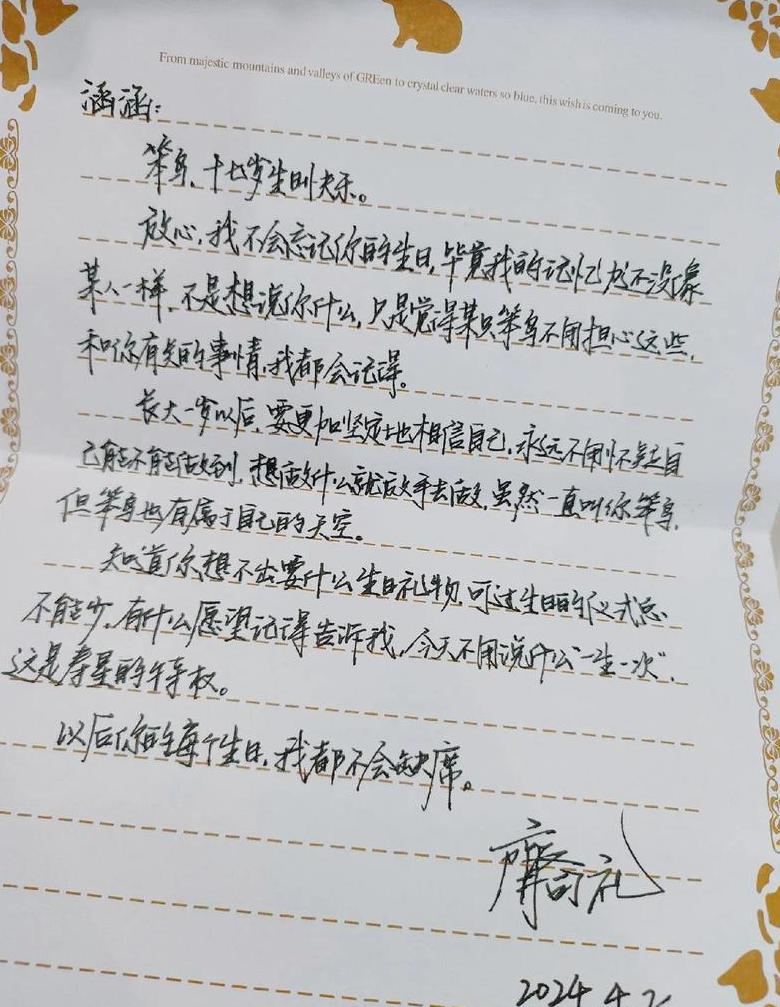 From majestic mountains and valleys of GREen to crystal clear waters so blue, this wish is coming to you.
涵涵：
笨鸟，十七岁生日快乐。
放心，我不会忘记你的生日，毕竟我的记忆力还没像
某人一样，不是想说你什么，只是觉得某只笨鸟不用担心这些，
和你有关的事情，我都会记得。
长大一岁以后，要更加坚定地相信自己，永远不用怀疑自
己能不能做到，想做什么就放手去做，虽然一直叫你笨鸟，
但笨鸟也有属于自己的天空。
知道你想不出要什么生日礼物，可过生日的仪式总
不能少，有什么愿望记得告诉我，今天不用说什么“一生一次”，
这是寿星的特权。
以后你的每个生日，我都不会缺席。
礼
2024 4